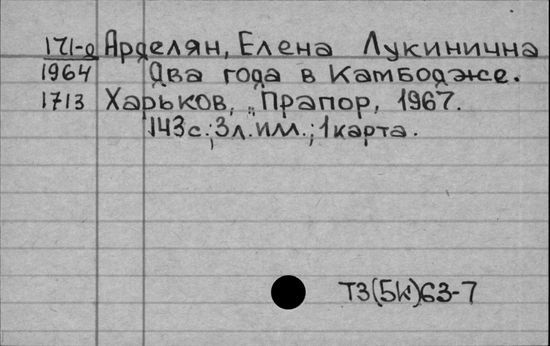 171-д Арделян, Елена Лукинична
1964 Два года в Камбодже.
1713 Харьков, "Прапор, 1967.
143с.; 3л. илл.; 1 карта.
Т3(5К)63-7